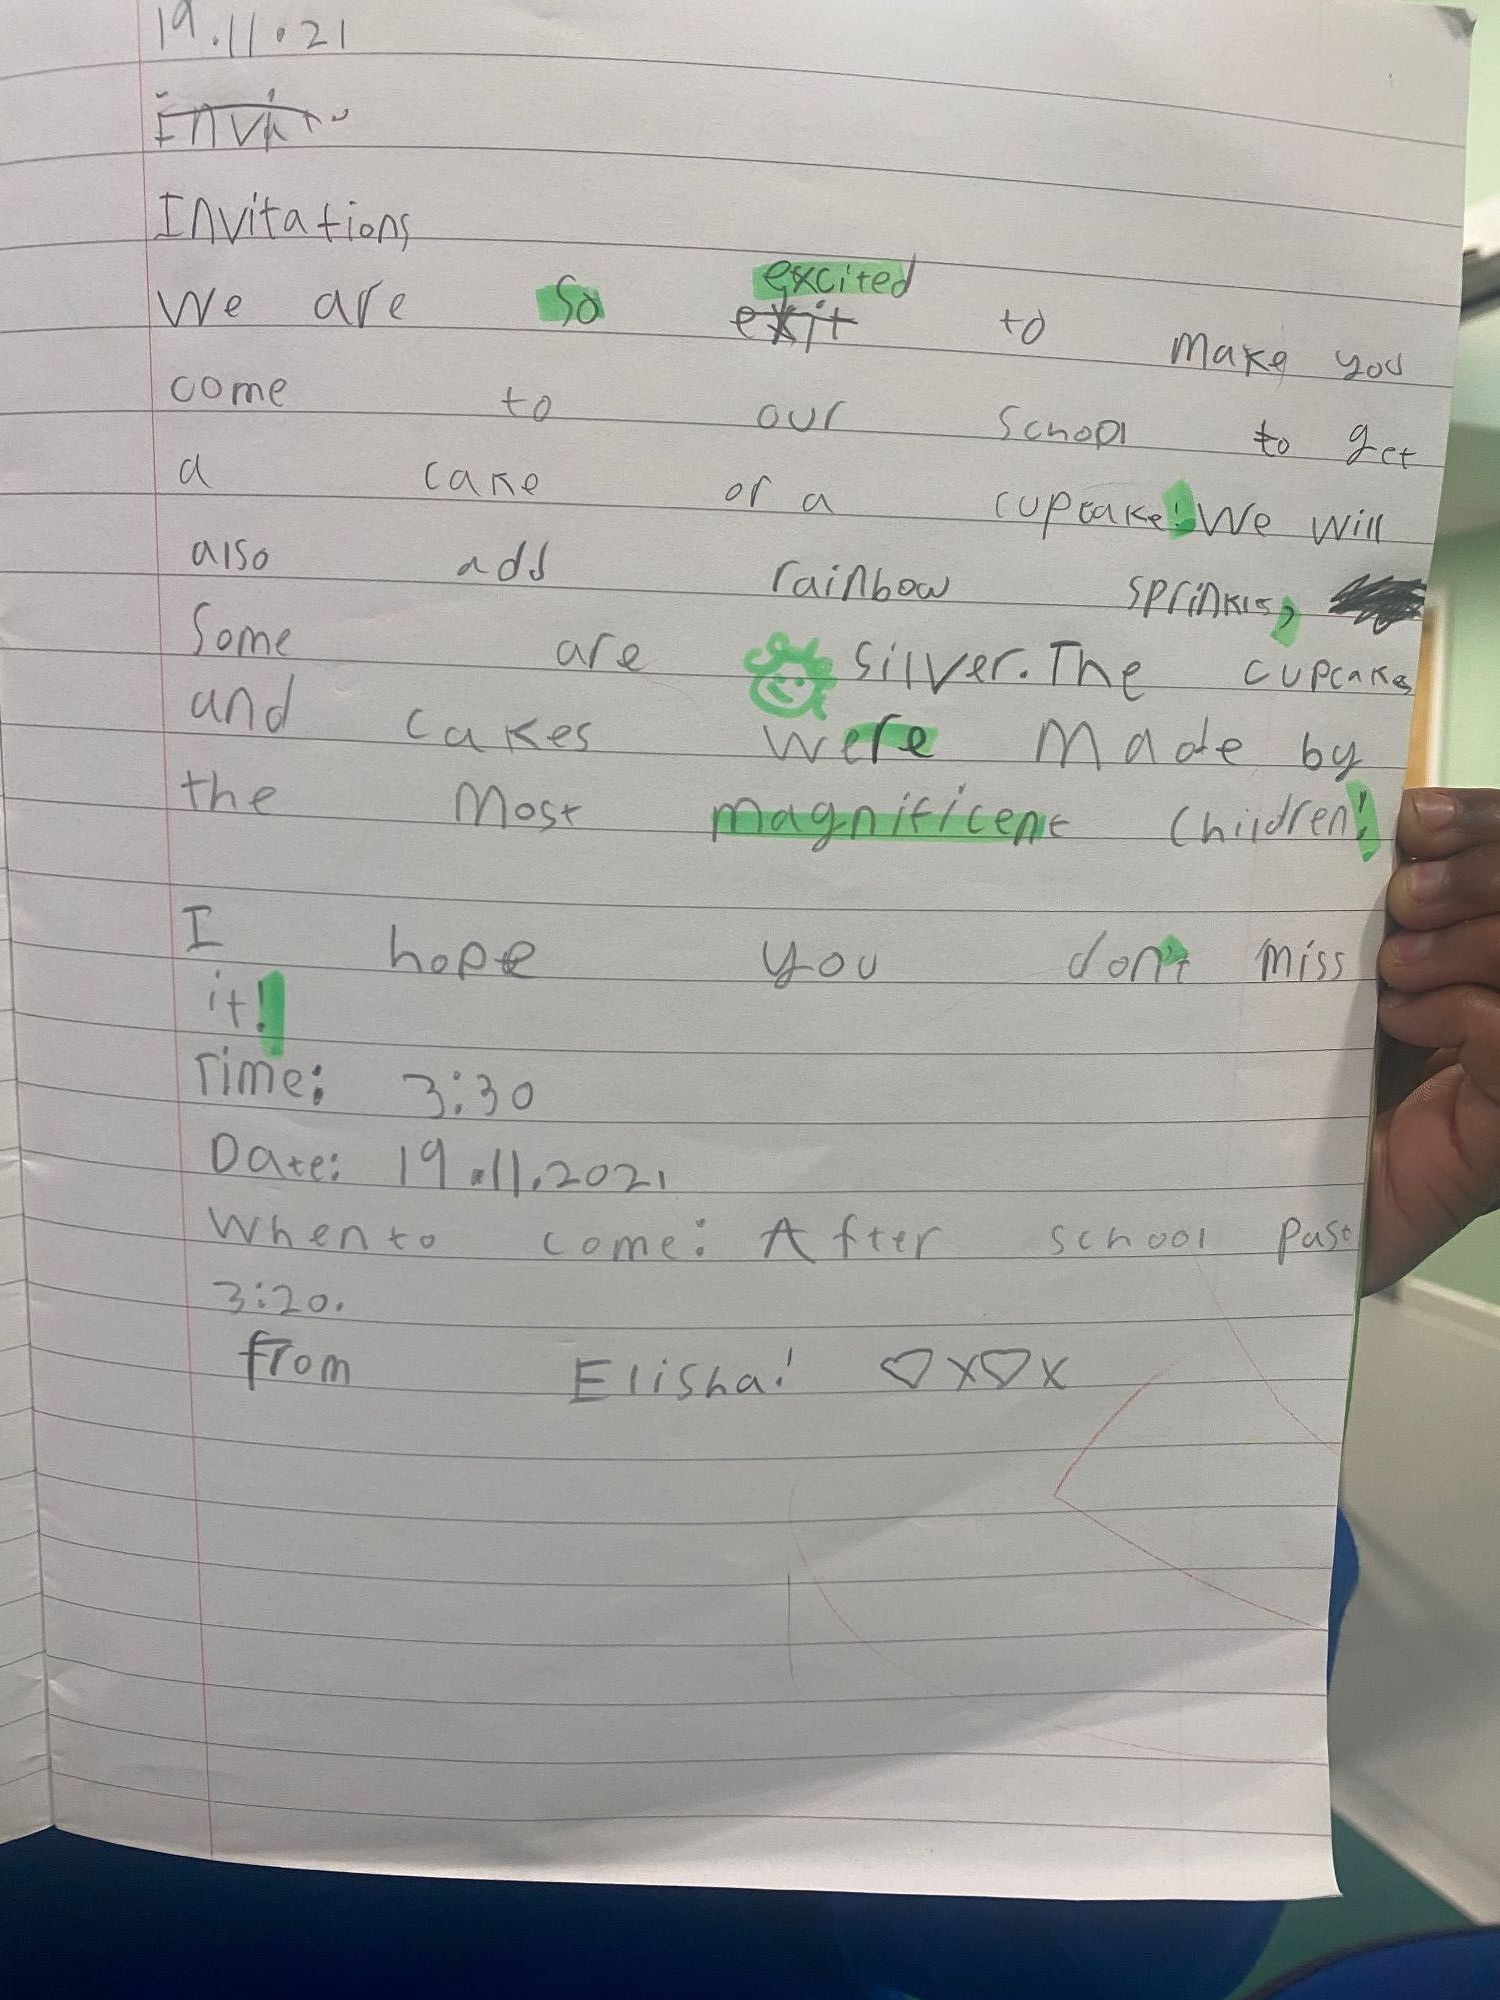 19.11.21
Invitations
excited
We are so exit to make you
come to our school to get
a cake or a cupcake! We will
also add rainbow sprinkls,
Some are silver. The cupcakes
and cakes were made by
the most magnificent children!
I hope you don't miss
it!
Time: 3:30
Date: 19.11.2021
When to come: After school past
3:20.
from Elisha! ♡x♡x